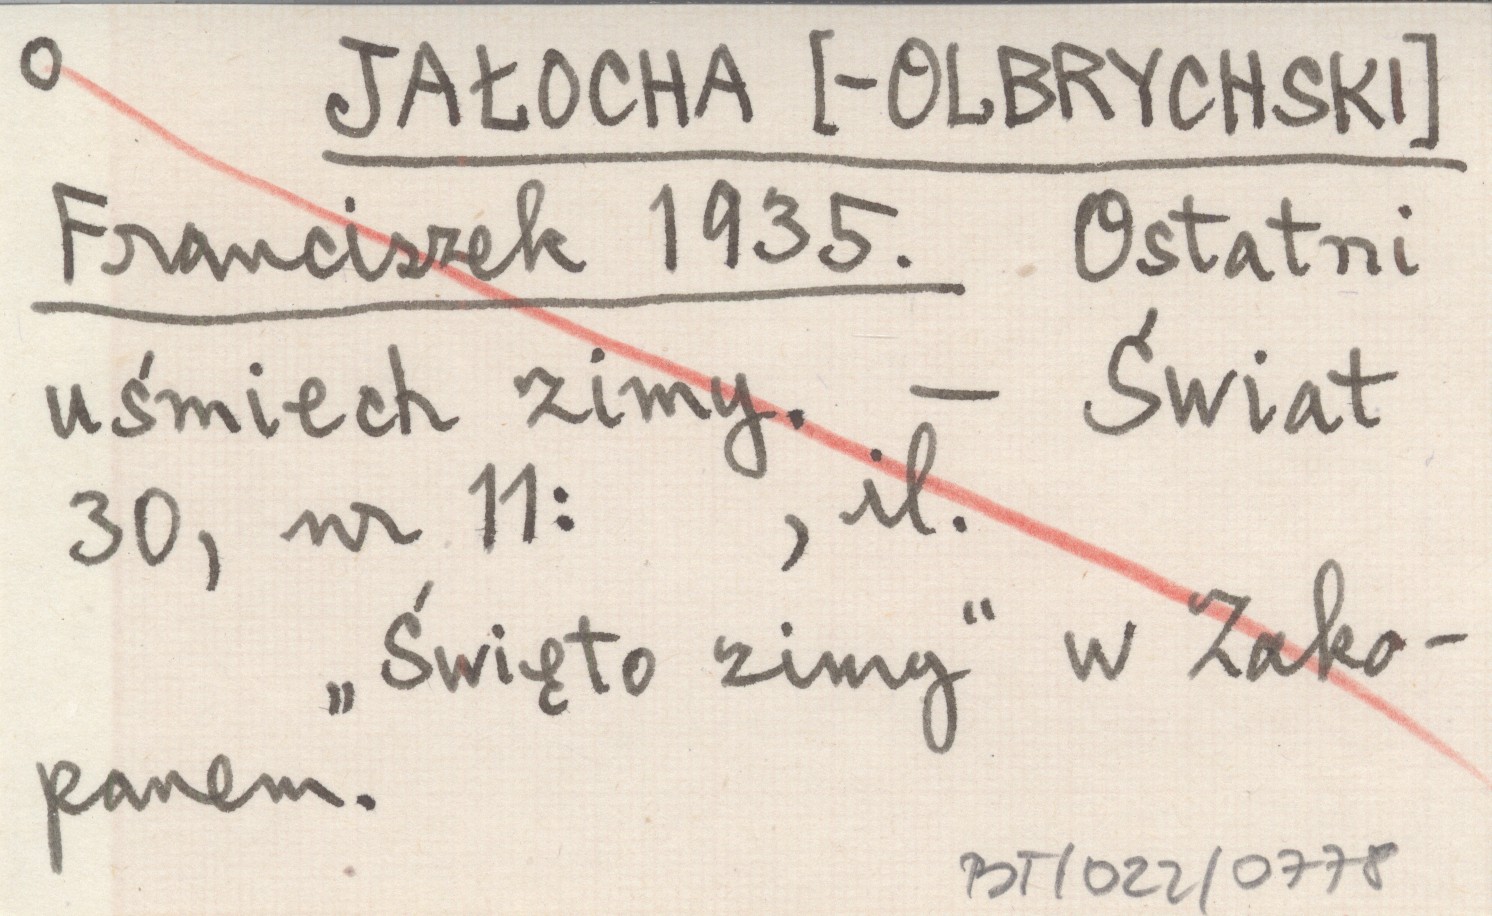 O JAŁOCHA [-OLBRYCHSKI]
Franciszek 1935. Ostatni
uśmiech zimy. — Świat
30, nr 11: , il.
„Święto zimy“ w Zako-
panem.
BT/022/0778